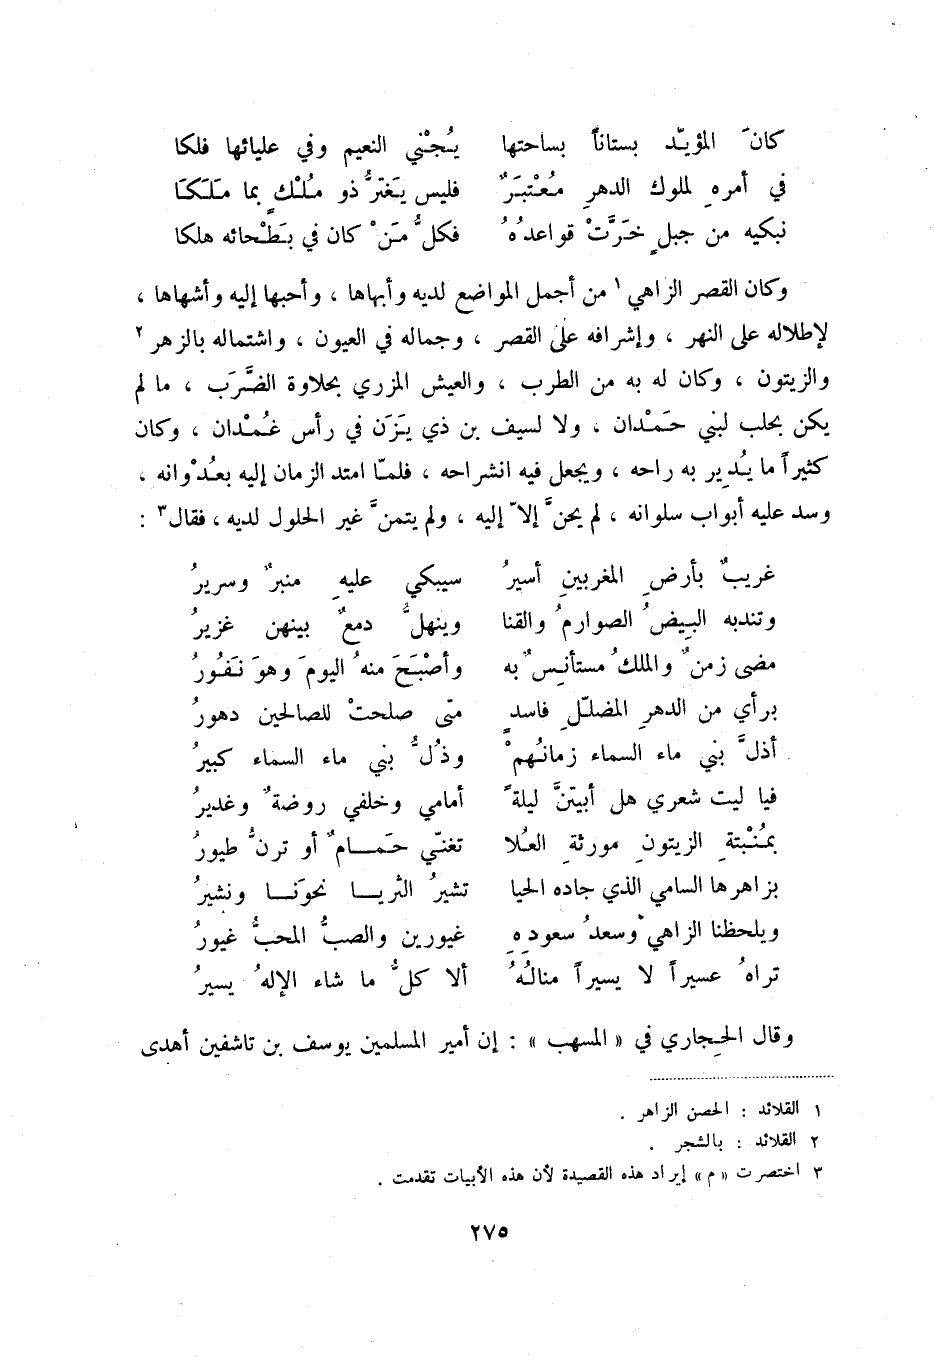 كانَ المؤيّد بستاناً بساحتها يُجْني النعيم وفي عليائها فلكا
في أمرهِ لملوك الدهرِ مُعْتبَرٌ فليس يَغترُّ ذو مُلْكٍ بما مَلَكَا
نبكيه من جبلٍ خرَّتْ قواعدُهُ فكلُّ مَنْ كان في بَطْحائه هلكا
وكان القصر الزاهي ١ من أجمل المواضع لديه وأبهاها ، وأحبها إليه وأشهاها ،
لإطلاله على النهر ، وإشرافه على القصر ، وجماله في العيون ، واشتماله بالزهر ٢
والزيتون ، وكان له به من الطرب ، والعيش المزري بحلاوة الضَّرَب ، ما لم
يكن بحلب لبني حَمْدان ، ولا لسيف بن ذي يَزَن في رأس غُمْدان ، وكان
كثيراً ما يُدِير به راحه ، ويجعل فيه انشراحه ، فلمّا امتد الزمان إليه بعُدْوانه ،
وسد عليه أبواب سلوانه ، لم يحنَّ إلاّ إليه ، ولم يتمنَّ غير الحلول لديه ، فقال٣ :
غريبٌ بأرضِ المغربينِ أسيرُ سيبكي عليهِ منبرٌ وسريرُ
وتندبه البيضُ الصوارمُ والقنا وينهلُّ دمعٌ بينهن غزيرُ
مضى زمنٌ والملكُ مستأنسٌ به وأصْبَحَ منهُ اليومَ وهوَ نَفُورُ
برأي من الدهرِ المضلّلِ فاسدٍ متى صلحتْ للصالحين دهورُ
أذلَّ بني ماء السماء زمانُهمْ وذُلُّ بني ماء السماء كبيرُ
فيا ليت شعري هل أبيتنَّ ليلةً أمامي وخلفي روضةٌ وغديرُ
بمُنْبتةِ الزيتونِ مورثةِ العُلا تغنّي حَمامٌ أو ترنُّ طيورُ
بزاهرها السامي الذي جاده الحيا تشيرُ الثريا نحوَنا ونشيرُ
ويلحظنا الزاهي وسعدُ سعودِهِ غيورين والصبُّ المحبُّ غيورُ
تراهُ عسيراً لا يسيراً منالُهُ ألا كلُّ ما شاء الإلهُ يسيرُ
وقال الحِجاري في « المسهب » : إن أمير المسلمين يوسف بن تاشفين أهدى
١ القلائد : الحصن الزاهر .
٢ القلائد : بالشجر .
٣ اختصرت « م » إيراد هذه القصيدة لأن هذه الأبيات تقدمت .
٢٧٥